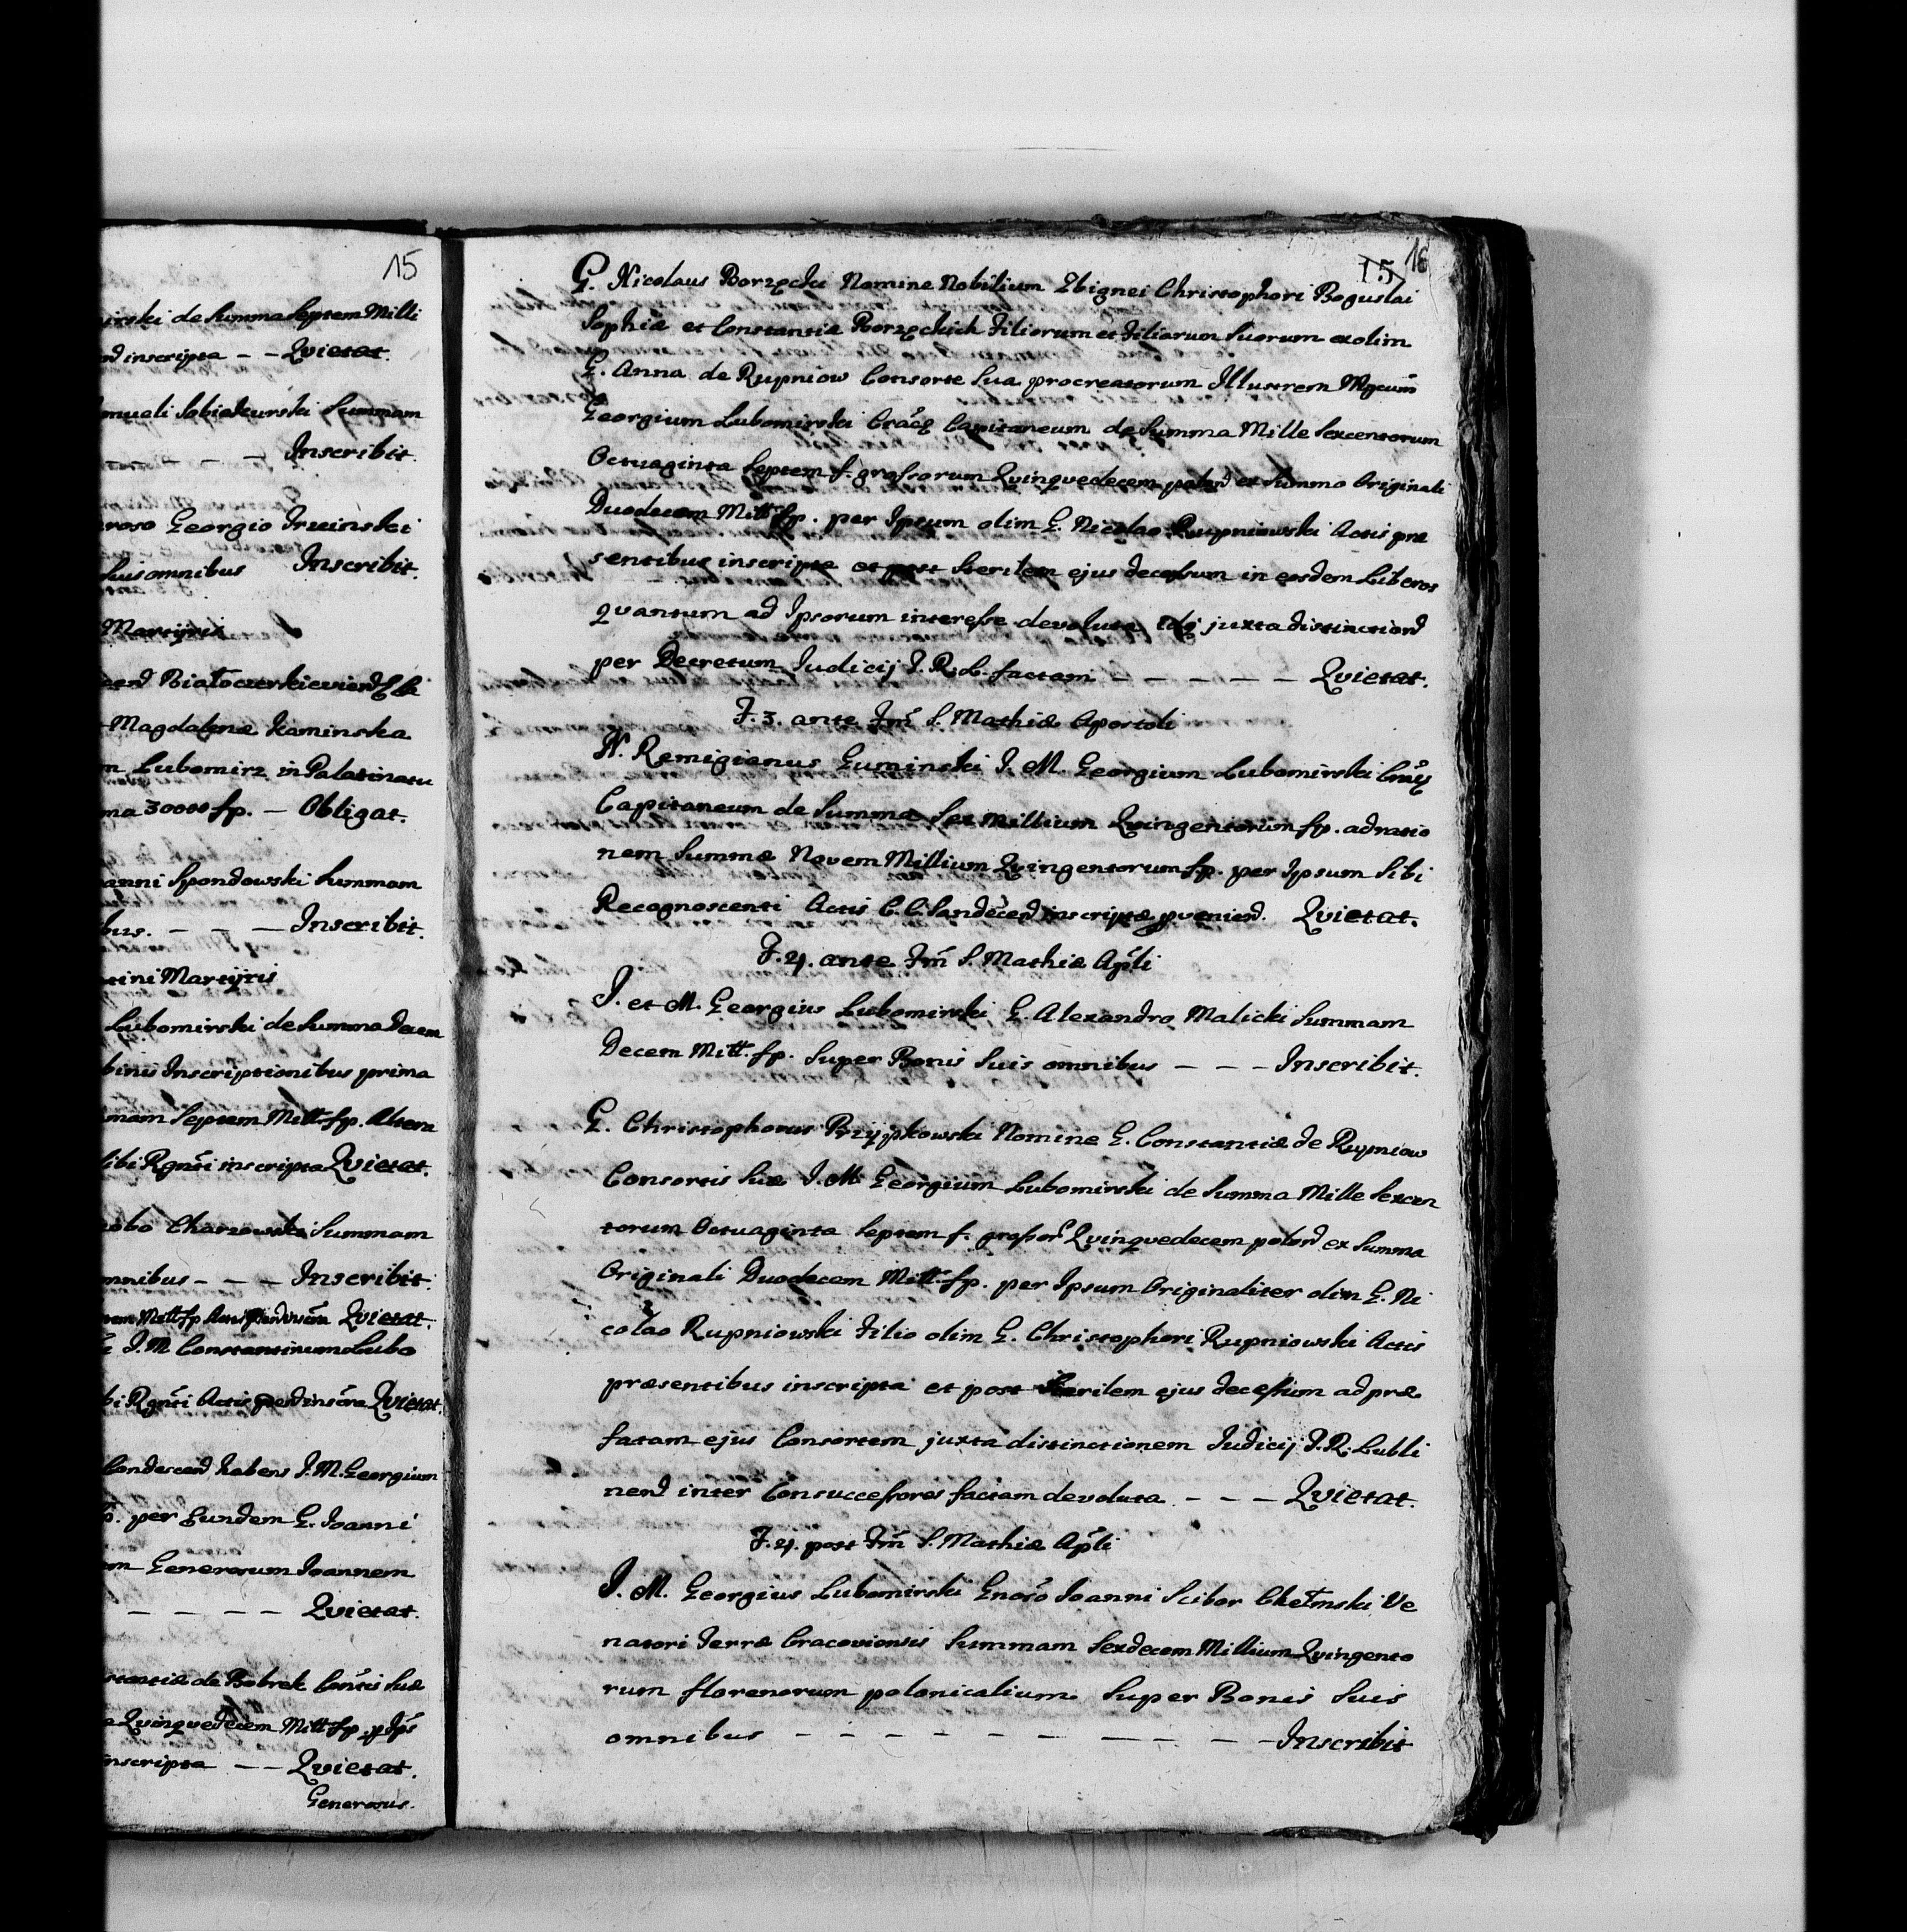 15
irski de Summa Septem Milli
inscripta - - Qvietat.
Summam
- - - - Inscribit.
roso Georgio
Suis omnibus Inscribit.
Martyris
Magdalenæ Kaminska
Lubomirz in Palatinatu
ma 30000 fp. - Obligat.
anni Spondowski Summam
bus. - - - Inscribit.
tini Martyris
Lubomirski de Summa Decem
binis Inscriptionibus prima
mam Septem Mill. fp. Altera
sibi Rgnti inscripta Qvietat.
cobo Charzewski Summam
mnibus - - - Inscribit.
Mill fp Qvietat.
J. M Constantinum Lubo
bi Rgnti Actis Qvietat.
habens J. M. Georgium
p. per Eundem G. Joanni
m Generosum Joannem
- - - - - Qvietat.
stantiæ de Bobrek Contis Suæ
Qvinquedecem Mill fp. p Ips
nscripta - - Qvietat.
Generosus.
15 16
G. Nicolaus Borzęcki Nomine Nobilium Zbignei Christophori Boguslai
Sophiæ et Constantiæ Borzęckich Filiorum et Filiarum Suorum ex olim
G. Anna de Rupniow Consorte Sua procreatorum Illustrem Mgcum
Georgium Lubomirski Crac Capitaneum de Summa Mille Sexcentorum
Octuaginta Septem f. grossorum Qvinquedecem polond ex Summa Originali
Duodecem Mill fp. per Ipsum olim G. Nicolao Rupniowski Actis præ
sentibus inscripta et post Sterilem ejus decessum in eosdem Liberos
qvantum ad Ipsorum interesse devoluta idq juxta distinctiond
per Decretum Judicij J. R. L. factam - - - - - Qvietat.
F. 3. ante Fm S. Mathiæ Apostoli
N. Remigianus Guminski J. M. Georgium Lubomirski Crac
Capitaneum de Summa Sex Millium Qvingentorum fp. ad ratio
nem Summæ Novem Millium Qvingentorum fp. per Ipsum Sibi
Recognoscenti Actis C. C. Sandecend inscriptæ proveniend. Qvietat.
F. 4. ante Fm S. Mathiæ Apli
J. et M. Georgius Lubomirski G. Alexandro Malicki Summam
Decem Mill. fp. Super Bonis Suis omnibus - - - Inscribit.
G. Christophorus Przypkowski Nomine G. Constantiæ de Rupniow
Consortis Suæ J. M. Georgium Lubomirski de Summa Mille Sexcen
torum Octuaginta Septem f. grossor Qvinquedecem polond ex Summa
Originali Duodecem Mill fp. per Ipsum Originaliter olim G. Ni
colao Rupniowski Filio olim G. Christophori Rupniowski Actis
præsentibus inscripta et post Sterilem ejus decessum ad præ
fatam ejus Consortem juxta distinctionem Judicij J. R. Lubli
nend inter Consuccessores factam devoluta - - - Qvietat.
F. 4. post Fm S. Mathiæ Apli
J. M. Georgius Lubomirski Gnoso Joanni Scibor Chełmski Ve
natori Terræ Cracoviensis Summam Sexdecem Millium Qvingento
rum florenorum polonicalium Super Bonis Suis
omnibus - - - - - - - - - Inscribit